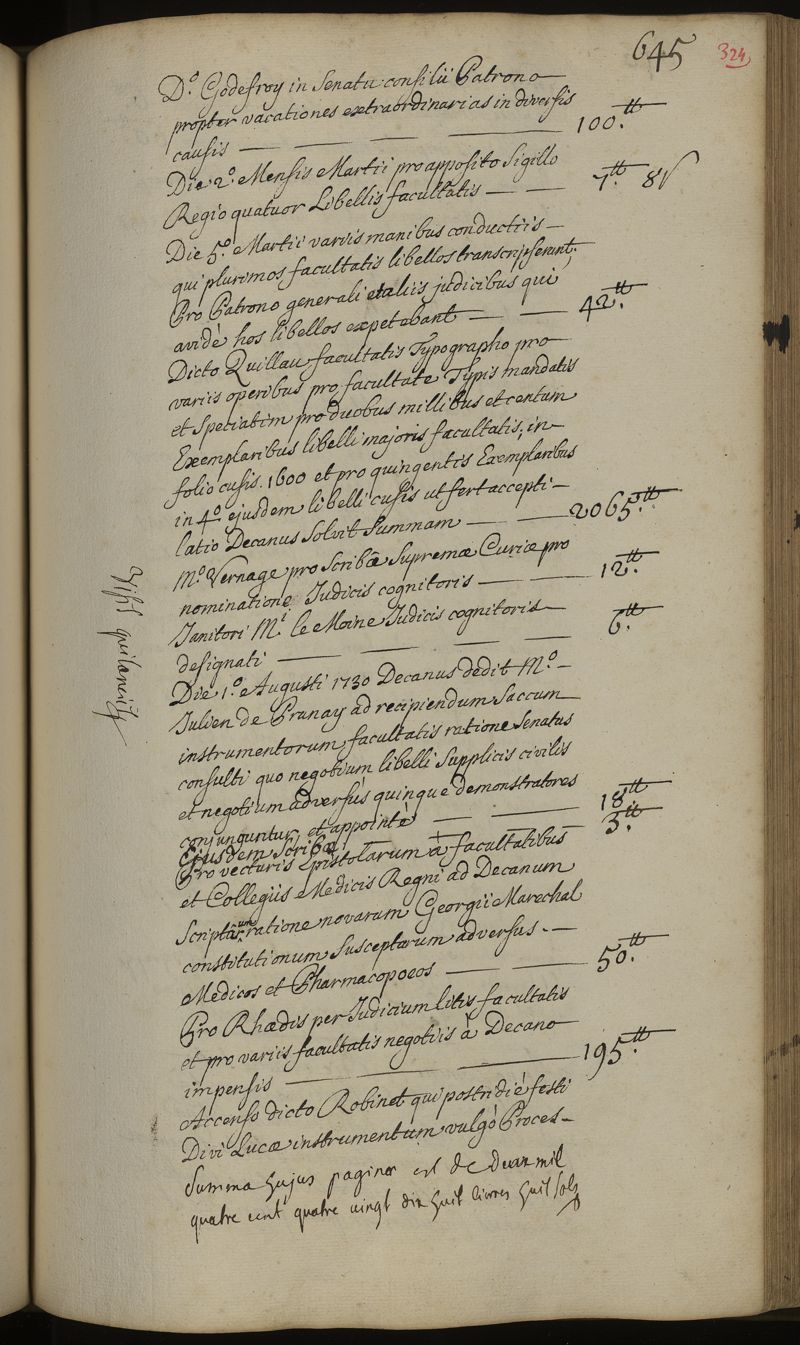 645 324
D.º Godefroy in Senatu consilii Patrono
propter vacationes extraordinarias in diversis
causis — — — 100.tt
Die 2.º Mensis Martii pro apposito Sigillo
Regio quatuor Libellis facultatis — — 7.tt 8s
Die 5.º Martii variis manibus conductiis —
qui plurimos facultatis libellos transcripserunt.
Pro Patrono generali et aliis judicibus qui
avidè hos libellos expetebant — — 42.tt
Dicto Quillau facultatis Typographo pro
variis operibus pro facultate Typis mandatis
et Speciatim pro duobus millibus et centum
Exemplaribus libelli majoris facultatis, in
folio cusis. 1600 et pro quingentis Exemplaribus
in 4.º ejusdem libelli cusis ut fert accepti-
latio Decanus Solvit Summam — — 2065.tt
M.º Vernage pro Scribâ Supremæ Curiæ pro
nominatione Judicis cognitoris — — 12.tt
Janitori M.i le Moine Judicis cognitoris —
designati — — — — 6.tt
Die 1.º Augusti 1730 Decanus dedit M.º —
Julien de Prunay ad recipiendum Saccum
instrumentorum facultatis ratione Senatus
consulti quo negotium libelli Supplicis civilis
et negotium adversùs quinque demonstratores
conjunguntur et appointé — — 18.tt
Ejusdem Scribæ — — — 3.tt
Pro vecturis Epistolarum à facultatibus
et Collegiis Medicis Regni ad Decanum
Scriptarum ratione novarum Georgii Marechal
constitutionum Susceptarum adversus —
Medicos et Pharmacopoeos — — 50.tt
Pro Rhedis per Judicium litis facultatis
et pro variis facultatis negotiis à Decano
impensis — — — 195.tt
Accenso dicto Robinet qui postridiè festi
Divi Lucæ instrumentum vulgò Proces-
Summa hujus paginæ est de deux mil
quatre cent quatre vingt dix huit livres huit sols